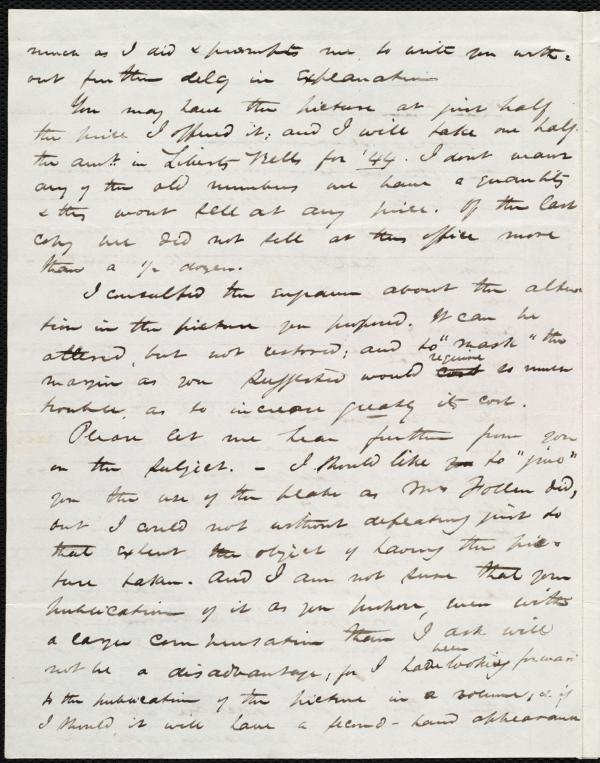 much as I did & prompts me to write you with=
out further delay in explanation
You may have the picture at just half
the price I offered it; and I will take one half
the amt. in Liberty Bells for '44. I dont want
any of the old numbers we have a quantity
& they wont sell at any price. Of the last
copy we did not sell at this office more
than a ½ dozen.
I consulted the engraver about the altera
tion in the picture you proposed. It can be
altered, but not restored; and to "mask" the
margin as you suggested would require so much
trouble, as to increase greatly its cost.
Please let me hear further from you
on the subject. - I should like to "give"
you the use of the plate as Mrs Follen did,
but I could not without defeating just so
that extent the object of having the pic=
ture taken. And I am not sure that your
publication of it as you propose, even with
a larger compensation than I ask will
not be a disadvantage, for I have been looking forward
to the publication of the picture in a volume, & if
I should it will have a second-hand appearance